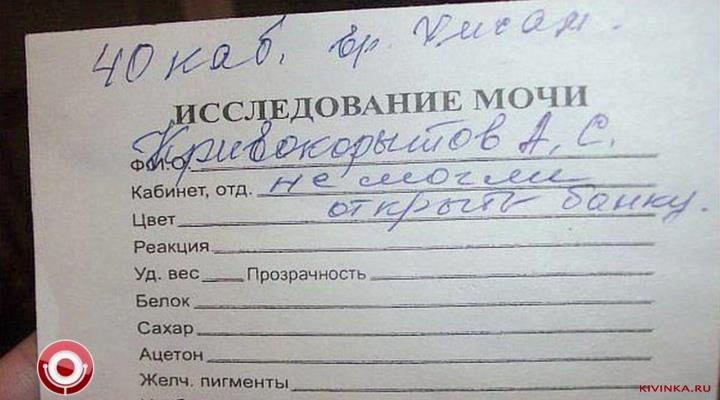 40 каб. вр.
ИССЛЕДОВАНИЕ МОЧИ
Ф.И.О. Кривокорытов А. С.
Кабинет, отд. не могли
открыть банку.
Цвет
Реакция
Уд. вес Прозрачность
Белок
Сахар
Ацетон
Желч. пигменты
KIVINKA.RU